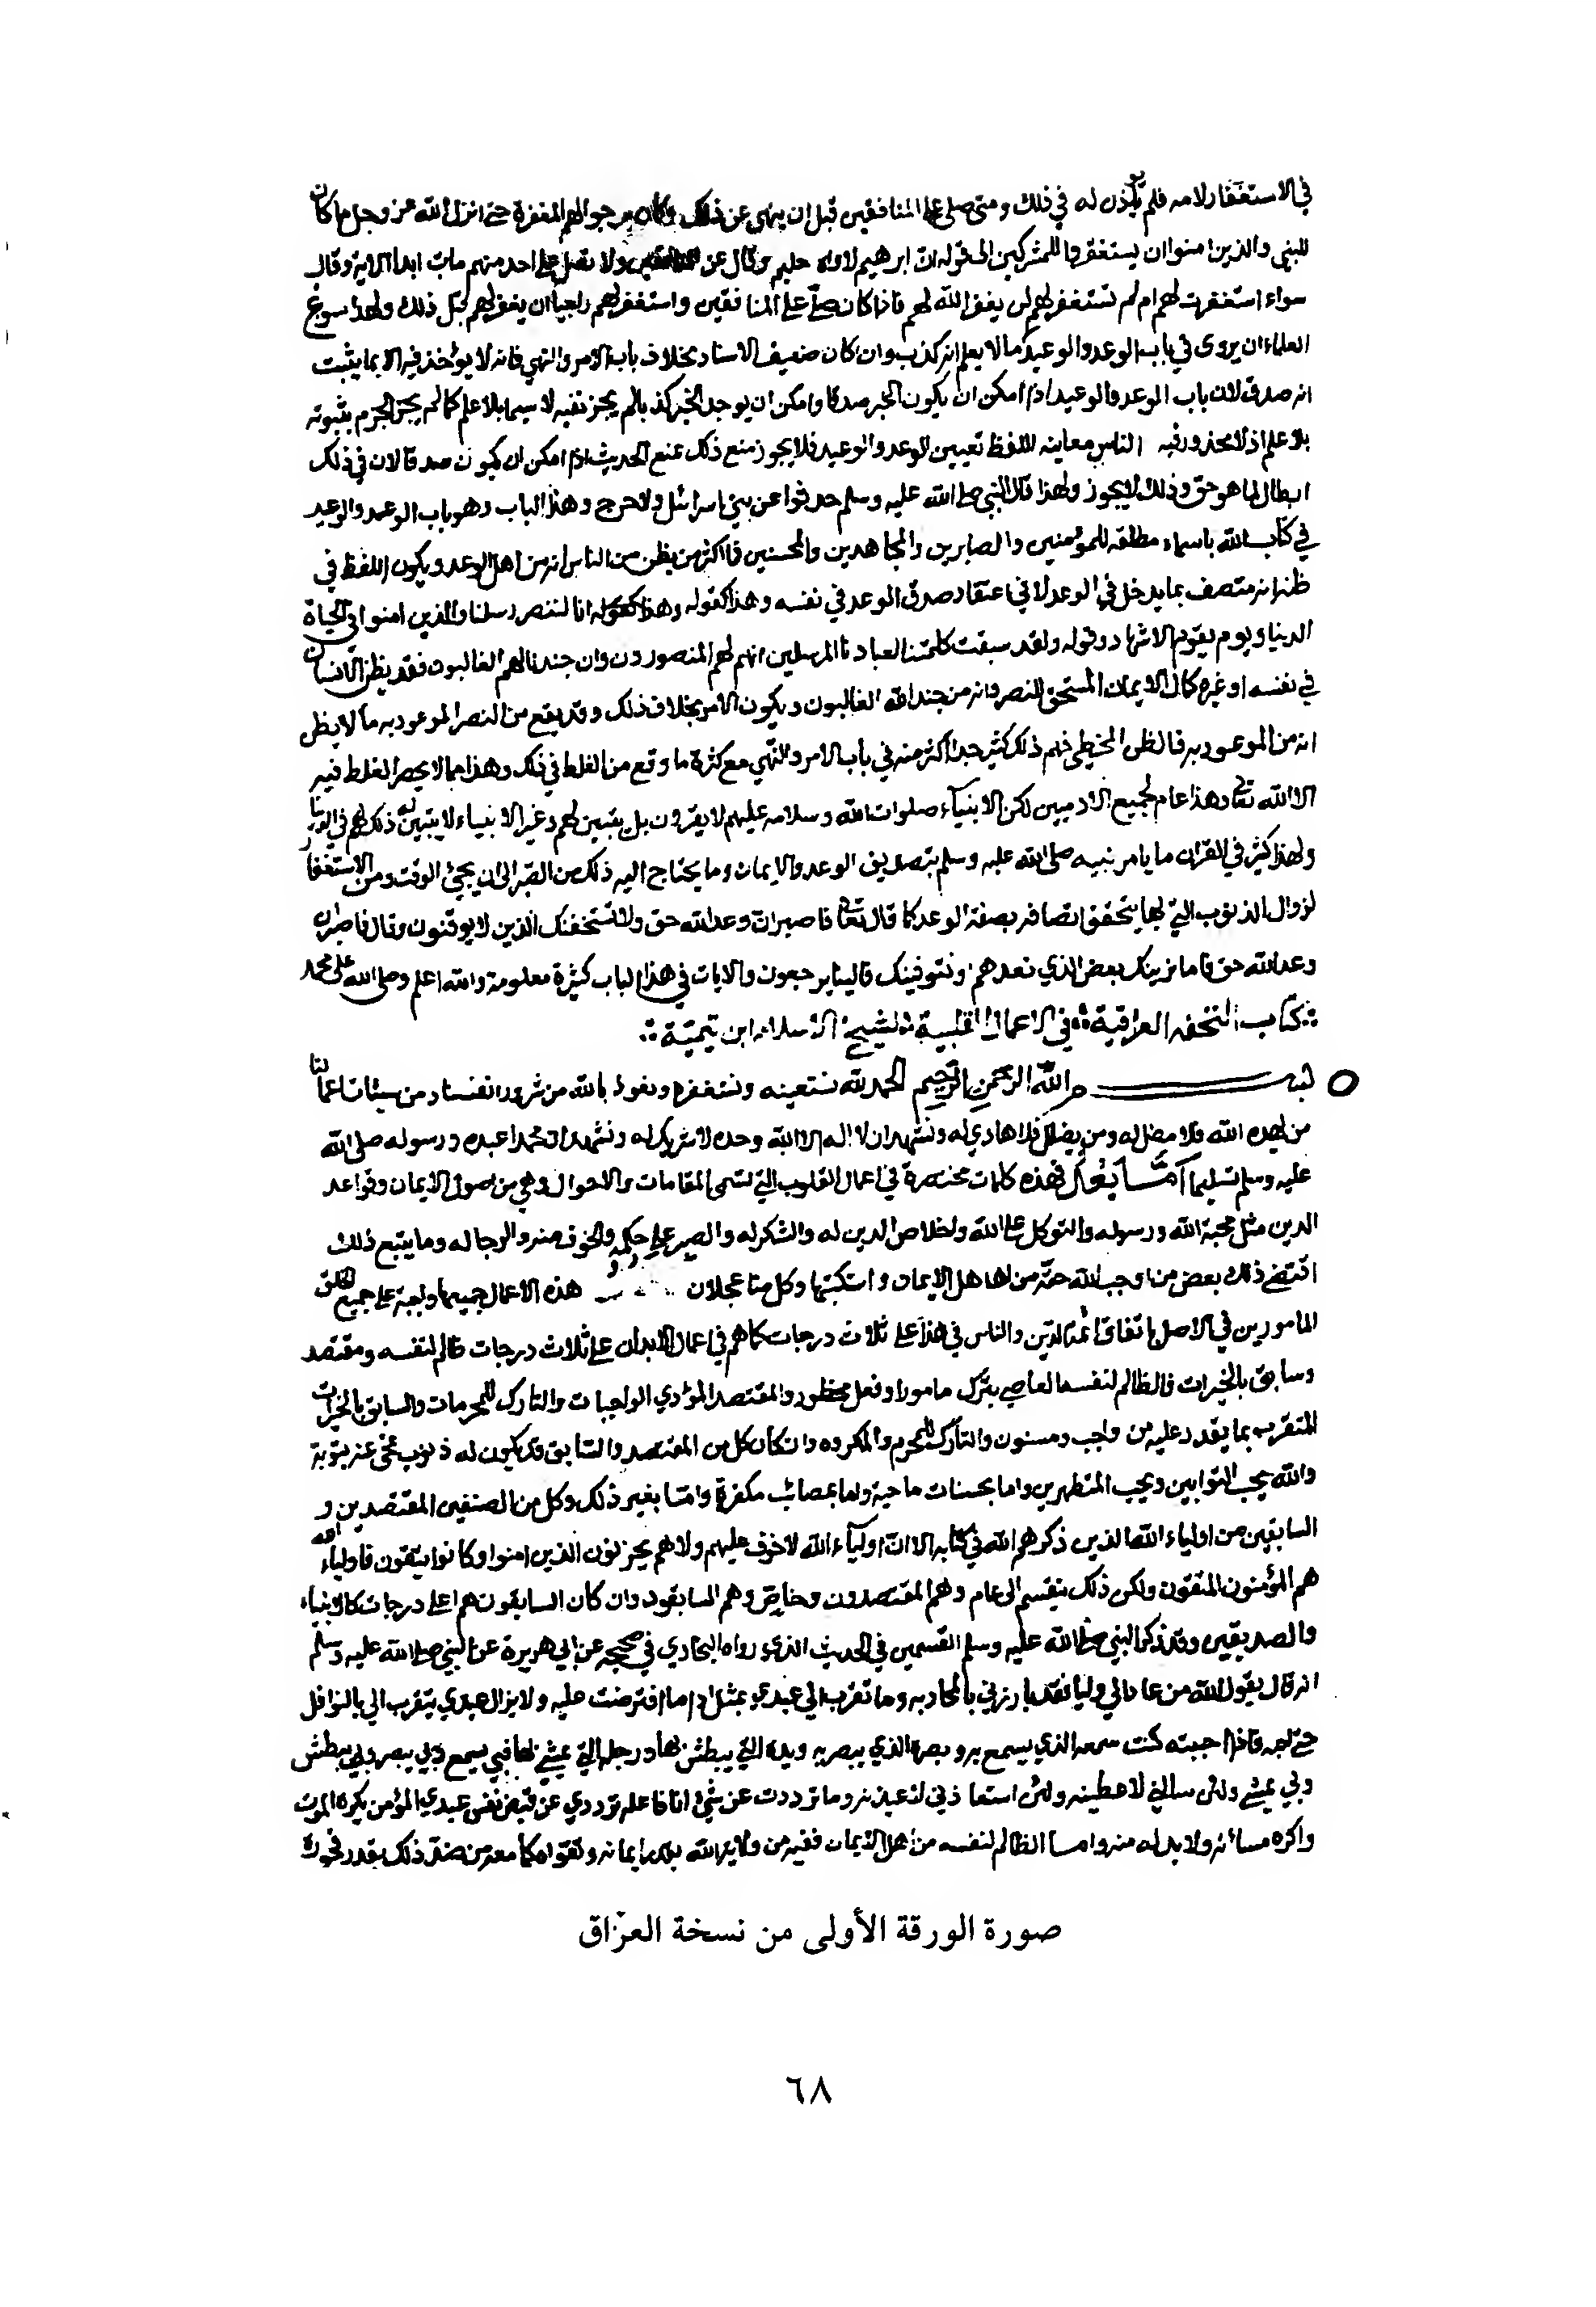 في الاستغفار لامه فلم يؤذن له في ذلك ومتى صلى على المنافقين قبل ان ينهى عن ذلك وكان يرجو لهم المغفرة حتى انزل الله عز وجل ما كان
للنبي والذين امنوا ان يستغفروا للمشركين الى قوله ان ابرهيم لاواه حليم وقال عن المنافقين ولا تصل على احد منهم مات ابدا الاية وقال
سواء استغفرت لهم ام لم تستغفر لهم لن يغفر الله لهم فاذا كان صلى على المنافقين واستغفر لهم راجيا ان يغفر لهم قبل ذلك ولهذا سوغ
العلماء ان يروى في باب الوعد والوعيد ما لا يعلم انه كذب وان كان ضعيف الاسناد بخلاف باب الامر والنهي فانه لا يؤخذ فيه الا بما يثبت
انه صدق لان باب الوعد والوعيد اذا امكن ان يكون الخبر صدقا وامكن ان يوجد الخبر كذبا لم يجز نفيه لا سيما بلا علم كما لم يجز الجزم بثبوته
بلا علم اذ لا محذور فيه الناس معاينه للفظ تعيين الوعد والوعيد فلا يجوز منع ذلك بمنع الحديث اذا امكن ان يكون صدقا لان في ذلك
ابطال لما هو حق وذلك لا يجوز ولهذا قال النبي صلى الله عليه وسلم حدثوا عن بني اسرائيل ولا حرج وهذا الباب وهو باب الوعد والوعيد
في كتاب الله باسماء مطلقه للمؤمنين والصابرين والمجاهدين والمحسنين فما اكثر من يظن من الناس انه من اهل الوعد ويكون اللفظ في
ظنه انه متصف بما يدخل في الوعد لا في اعتقاد صدق الوعد في نفسه وهذا كقوله وهذا كقوله انا لننصر رسلنا والذين امنوا في الحياة
الدنيا ويوم يقوم الاشهاد وقوله ولقد سبقت كلمتنا لعبادنا المرسلين انهم لهم المنصورون وان جندنا لهم الغالبون فقد يظن الانسان
في نفسه او غيره كمال الايمان المستحق للنصر وانه من جند الله الغالبون ويكون الامر بخلاف ذلك وقد يقع من النصر الموعود به ما لا يظن
انه من الموعود به فالظن المخطئ فهم ذلك كثير جدا اكثر منه في باب الامر والنهي مع كثرة ما وقع من الغلط في ذلك وهذا مما لا يحصر الغلط فيه
الا الله تعالى وهذا عام لجميع الادميين لكن الانبياء صلوات الله وسلامه عليهم لا يقرون بل يتبين لهم وغير الانبياء لا يتبين له ذلك لهم في الدنيا
ولهذا كثر في القران ما يامر نبيه صلى الله عليه وسلم بتصديق الوعد والايمان وما يحتاج اليه ذلك من الصبر الى ان يجئ الوقت ومن الاستغفار
لزوال الذنوب التي بها يتحقق اتصافه بصفة الوعد كما قال تعالى فاصبر ان وعد الله حق ولا يستخفنك الذين لا يوقنون وقال فاصبر ان
وعد الله حق فاما نرينك بعض الذي نعدهم او نتوفينك فالينا يرجعون والايات في هذا الباب كثيرة معلومة والله اعلم وصلى الله على محمد
كتاب التحفه العراقية في الاعمال القلبية لشيخ الاسلام ابن تيمية
بسم الله الرحمن الرحيم الحمد لله نستعينه ونستغفره ونعوذ بالله من شرور انفسنا ومن سيئات اعمالنا
من يهده الله فلا مضل له ومن يضلل فلا هادي له ونشهد ان لا اله الا الله وحده لا شريك له ونشهد ان محمدا عبده ورسوله صلى الله
عليه وسلم تسليما اما بعد فهذه كلمات مختصرة في اعمال القلوب التي تسمى المقامات والاحوال وهي من اصول الايمان وقواعد
الدين مثل محبة الله ورسوله والتوكل على الله واخلاص الدين له والشكر له والصبر على حكمه والخوف منه والرجا له وما يتبع ذلك
اقتضى ذلك بعض من اوجب الله حقه من اهل الايمان واستكتبها وكل منا عجلان هذه الاعمال جميعها واجبة على جميع الخلق
المامورين في الاصل باتفاق ائمة الدين والناس في هذا على ثلاث درجات كما هم في اعمال الابدان على ثلاث درجات ظالم لنفسه ومقتصد
وسابق بالخيرات فالظالم لنفسه العاصي بترك مامور او فعل محظور والمقتصد المؤدي الواجبات والتارك للمحرمات والسابق بالخيرات
المتقرب بما يقدر عليه من واجب ومسنون والتارك للمحرم والمكروه وان كان كل من المقتصد والسابق قد يكون له ذنوب تمحى عنه بتوبة
والله يحب التوابين ويحب المتطهرين واما بحسنات ماحية واما بمصائب مكفرة واما بغير ذلك وكل من الصنفين المقتصدين و
السابقين من اولياء الله الذين ذكرهم الله في كتابه الا ان اولياء الله لا خوف عليهم ولا هم يحزنون الذين امنوا وكانوا يتقون فاولياء الله
هم المؤمنون المتقون ولكن ذلك ينقسم الى عام وهم المقتصدون وخاص وهم السابقون وان كان السابقون هم اعلى درجات كالانبياء
والصديقين وقد ذكر النبي صلى الله عليه وسلم القسمين في الحديث الذي رواه البخاري في صحيحه عن ابي هريرة عن النبي صلى الله عليه وسلم
انه قال يقول الله من عادى لي وليا فقد بارزني بالمحاربه وما تقرب الي عبدي بمثل اداء ما افترضت عليه ولا يزال عبدي يتقرب الي بالنوافل
حتى احبه فاذا احببته كنت سمعه الذي يسمع به وبصره الذي يبصر به ويده التي يبطش بها ورجله التي يمشي بها فبي يسمع وبي يبصر وبي يبطش
وبي يمشي ولئن سالني لاعطينه ولئن استعاذني لاعيذنه وما ترددت عن شئ انا فاعله ترددي عن قبض نفس عبدي المؤمن يكره الموت
واكره مسائته ولا بد له منه واما الظالم لنفسه من اهل الايمان ففيه من ولاية الله بقدر ايمانه وتقواه كما معه من ضد ذلك بقدر فجوره
صورة الورقة الأولى من نسخة العراق
٦٨